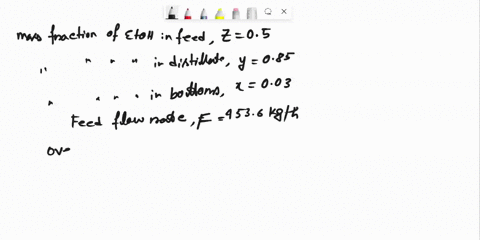 mass fraction of EtoH in feed, Z = 0.5
" " " " in distillate, y = 0.85
" " " " in bottoms, x = 0.03
Feed flow rate, F = 453.6 kg/h
ove